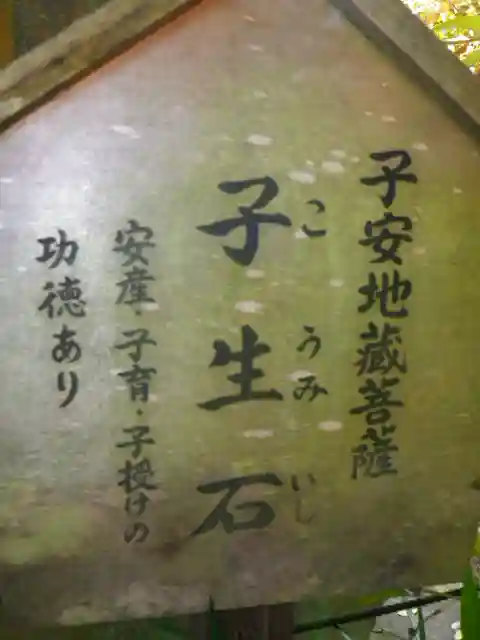 子安地蔵菩薩
子生石
こ うみ いし
安産・子育・子授けの
功徳あり